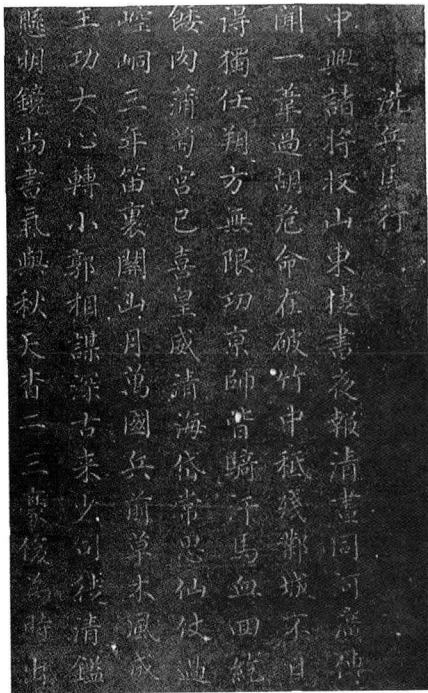 洗兵馬行
中興諸將收山東捷書夜報清晝同河廣傳
聞一葦過胡危命在破竹中秪殘鄴城不日
得獨任朔方無限功京師皆騎汗馬血回紇
餧肉蒲萄宮已喜皇威清海岱常思仙仗過
崆峒三年笛裏關山月萬國兵前草木風成
王功大心轉小郭相謀深古來少司徒清鑑
懸明鏡尚書氣與秋天杳二三豪俊為時出